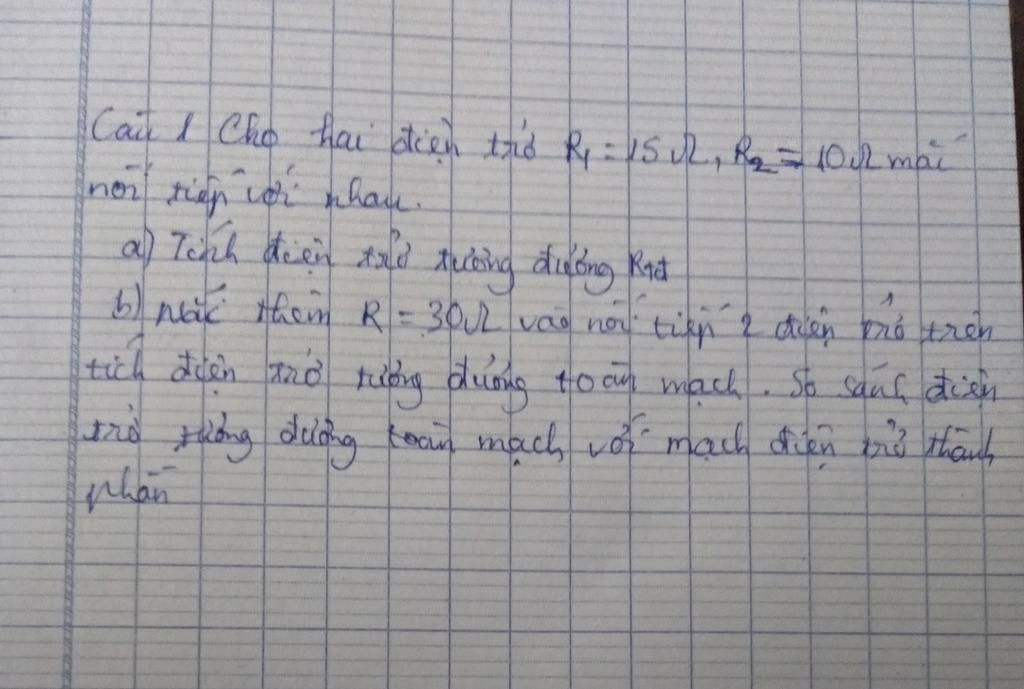 Câu 1 Cho hai điện trở R₁ = 15Ω, R₂ = 10Ω mắc
nối tiếp với nhau.
a) Tính điện trở tương đương Rtđ
b) mắc thêm R = 30Ω vào nối tiếp 2 điện trở trên
tích điện trở tương đương toàn mạch. So sánh điện
trở tương đương toàn mạch với mạch điện trở thành
phần